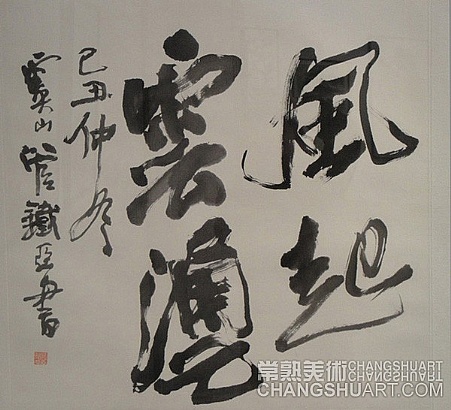 風起
雲湧
己丑仲冬
虞山管鐵亞書
常熟美術CHANGSHUART
CHANGSHUART.COM